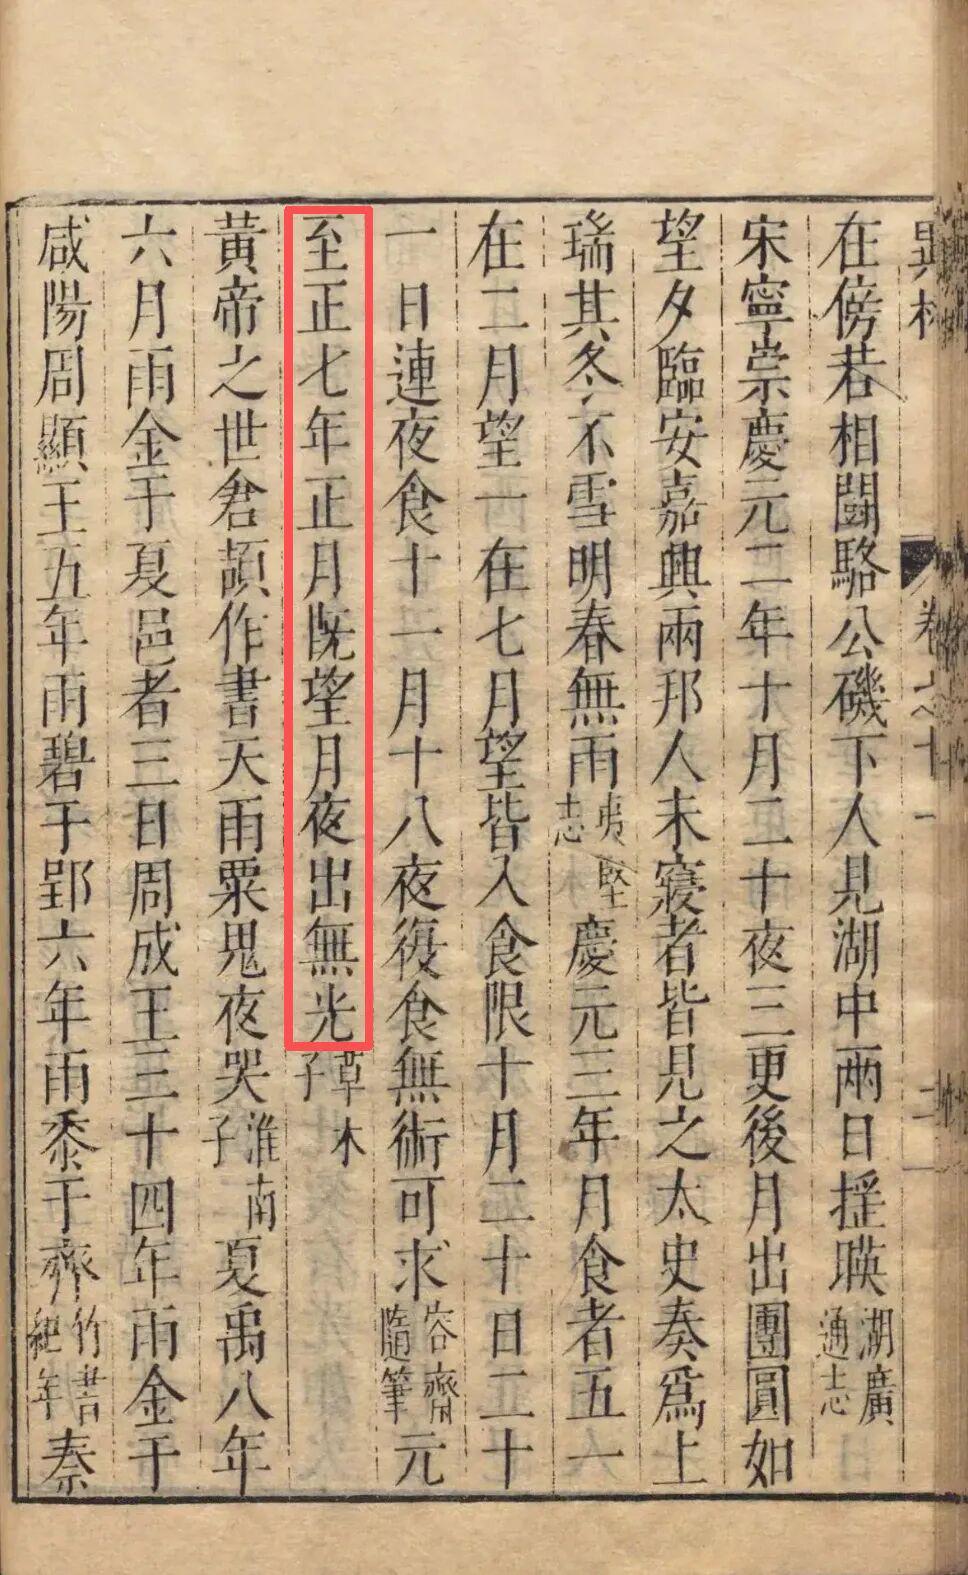 卷之十一
二
在傍若相鬪駱公磯下人見湖中兩日揺暎湖廣通志
宋寧崇慶元二年十月二十夜三更後月出團圓如
望夕臨安嘉興兩邦人未寢者皆見之太史奏爲上
瑞其冬不雪明春無雨夷堅志慶元三年月食者五一
在二月望一在七月望皆入食限十月二十日二十
一日連夜食十一月十八夜復食無術可求容齋隨筆元
至正七年正月既望月夜出無光草木子
黃帝之世君頡作書天雨粟鬼夜哭淮南子夏禹八年
六月雨金于夏邑者三日周成王三十四年雨金于
咸陽周顯王五年雨碧于郢六年雨黍于齊竹書紀年秦